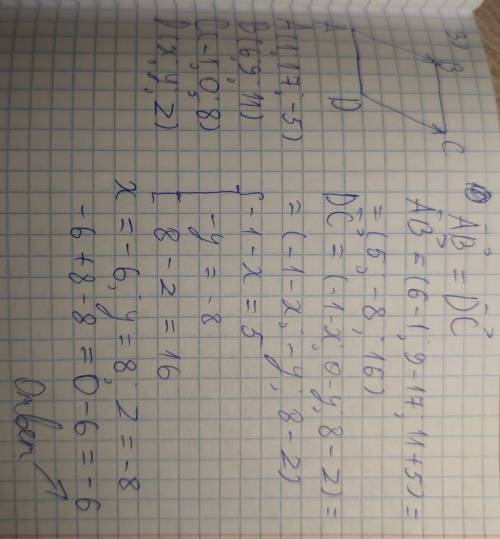 3)
B
C
A
D
A(1; 17; -5)
B(6; 9; 11)
C(-1; 0; 8)
D(x; y; z)
AB = DC
AB = (6-1; 9-17; 11+5) =
= (5; -8; 16)
DC = (-1-x; 0-y; 8-z) =
= (-1-x; -y; 8-z)
{ -1-x = 5
-y = -8
8-z = 16
x = -6; y = 8; z = -8
-6+8-8 = 0-6 = -6
Ответ